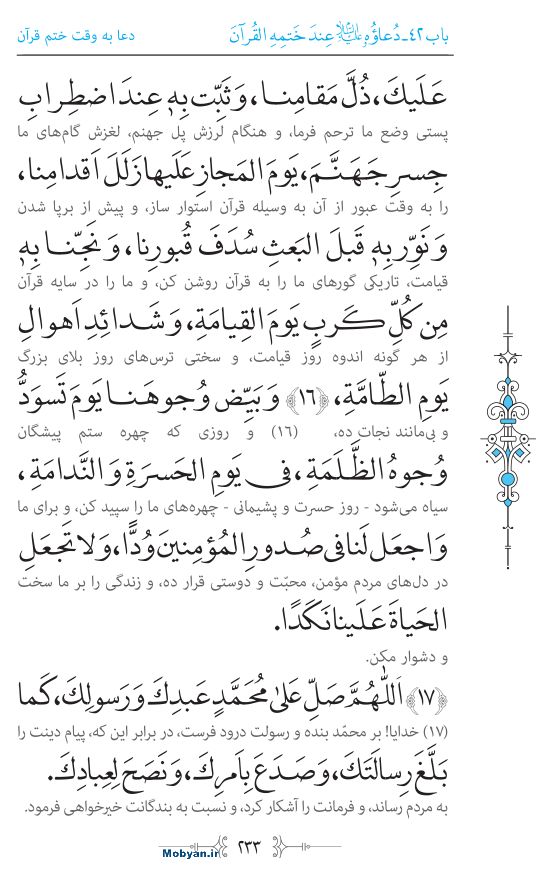 باب ۴۲ـ دُعاؤُهِ عليه‌السلام عِندَ خَتمِهِ القُرآنَ
دعا به وقت ختم قرآن
عَلَيكَ، ذُلَّ مَقامِنا، وَ ثَبِّت بِهٖ عِندَ اضطِرابِ
پستی وضع ما ترحم فرما، و هنگام لرزش پل جهنم، لغزش گام‌های ما
جِسرِ جَهَنَّمَ، يَومَ المَجازِ عَلَيها زَلَلَ اَقدامِنا،
را به وقت عبور از آن به وسیله قرآن استوار ساز، و پیش از برپا شدن
وَ نَوِّر بِهٖ قَبلَ البَعثِ سُدَفَ قُبورِنا، وَ نَجِّنا بِهٖ
قیامت، تاریکی گورهای ما را به قرآن روشن کن، و ما را در سایه قرآن
مِن كُلِّ كَربٍ يَومَ القِيامَةِ، وَ شَدائِدِ اَهوالِ
از هر گونه اندوه روز قیامت، و سختی ترس‌های روز بلای بزرگ
يَومِ الطّامَّةِ، ﴿۱۶﴾ وَ بَيِّض وُجوهَنا يَومَ تَسوَدُّ
و بی‌مانند نجات ده، (۱۶) و روزی که چهره ستم پیشگان
وُجوهُ الظَّلَمَةِ، فى يَومِ الحَسرَةِ وَ النَّدامَةِ،
سیاه می‌شود - روز حسرت و پشیمانی - چهره‌های ما را سپید کن، و برای ما
وَ اجعَل لَنا فى صُدورِ المُؤمِنينَ وُدًّا، وَ لا تَجعَلِ
در دل‌های مردم مؤمن، محبّت و دوستی قرار ده، و زندگی را بر ما سخت
الحَياةَ عَلَينا نَكَدًا.
و دشوار مکن.
﴿۱۷﴾ اَللّٰهُمَّ صَلِّ عَلىٰ مُحَمَّدٍ عَبدِكَ وَ رَسولِكَ، كَما
(۱۷) خدایا! بر محمّد بنده و رسولت درود فرست، در برابر این که، پیام دینت را
بَلَّغَ رِسالَتَكَ، وَ صَدَعَ بِاَمرِكَ، وَ نَصَحَ لِعِبادِكَ.
به مردم رساند، و فرمانت را آشکار کرد، و نسبت به بندگانت خیرخواهی فرمود.
۲۳۳
Mobyan.ir